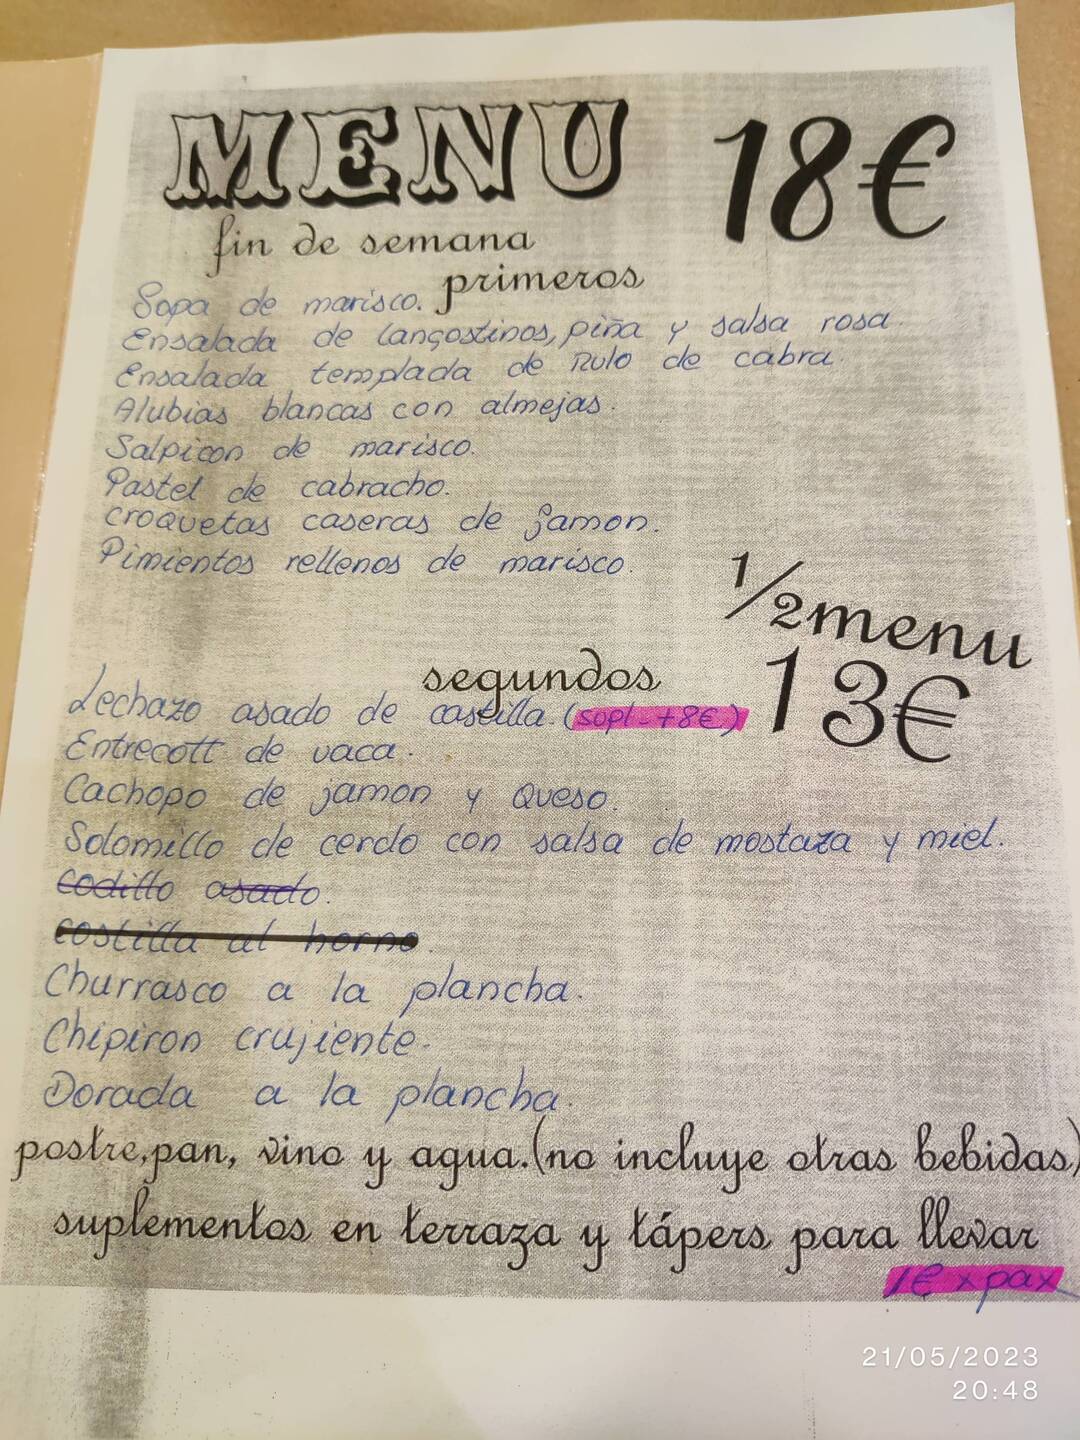 MENU 18€
fin de semana
primeros
Sopa de marisco.
Ensalada de langostinos, piña y salsa rosa.
Ensalada templada de Rulo de cabra.
Alubias blancas con almejas.
Salpicon de marisco.
Pastel de cabracho.
croquetas caseras de jamon.
Pimientos rellenos de marisco.
1/2 menu
13€
segundos
Lechazo asado de castilla. (supl - +8€)
Entrecott de vaca.
Cachopo de jamon y queso.
Solomillo de cerdo con salsa de mostaza y miel.
codillo asado.
costilla al horno.
Churrasco a la plancha.
Chipiron crujiente.
Dorada a la plancha.
postre,pan, vino y agua.(no incluye otras bebidas)
suplementos en terraza y tápers para llevar
1€ x pax
21/05/2023
20:48